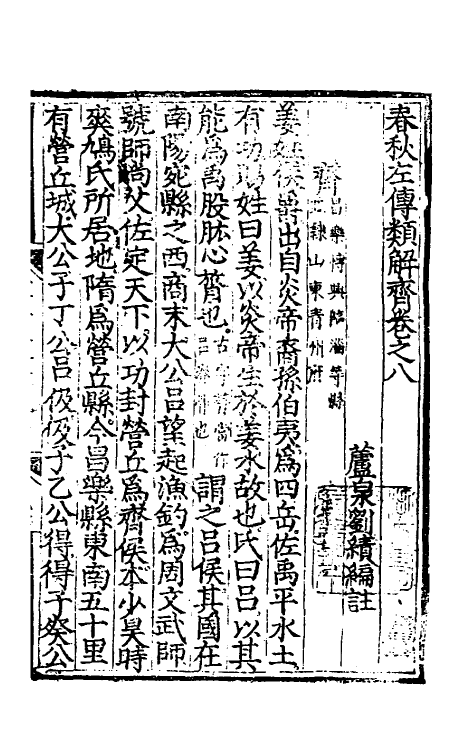 春秋左傳類解齊卷之八
蘆泉劉績編註
齊
昌樂博興臨淄等縣
隸山東青州府
姜姓侯爵出自炎帝裔孫伯夷爲四岳佐禹平水土
有功賜姓曰姜以炎帝生於姜水故也氏曰吕以其
能爲禹股肱心膂也
謂之吕侯其國在
南陽宛縣之西商末大公吕望起漁釣爲周文武師
號師尚父佐定天下以功封營丘爲齊侯本少昊時
爽鳩氏所居地隋爲營丘縣今昌樂縣東南五十里
有營丘城大公子丁公吕伋伋子乙公得得子癸公